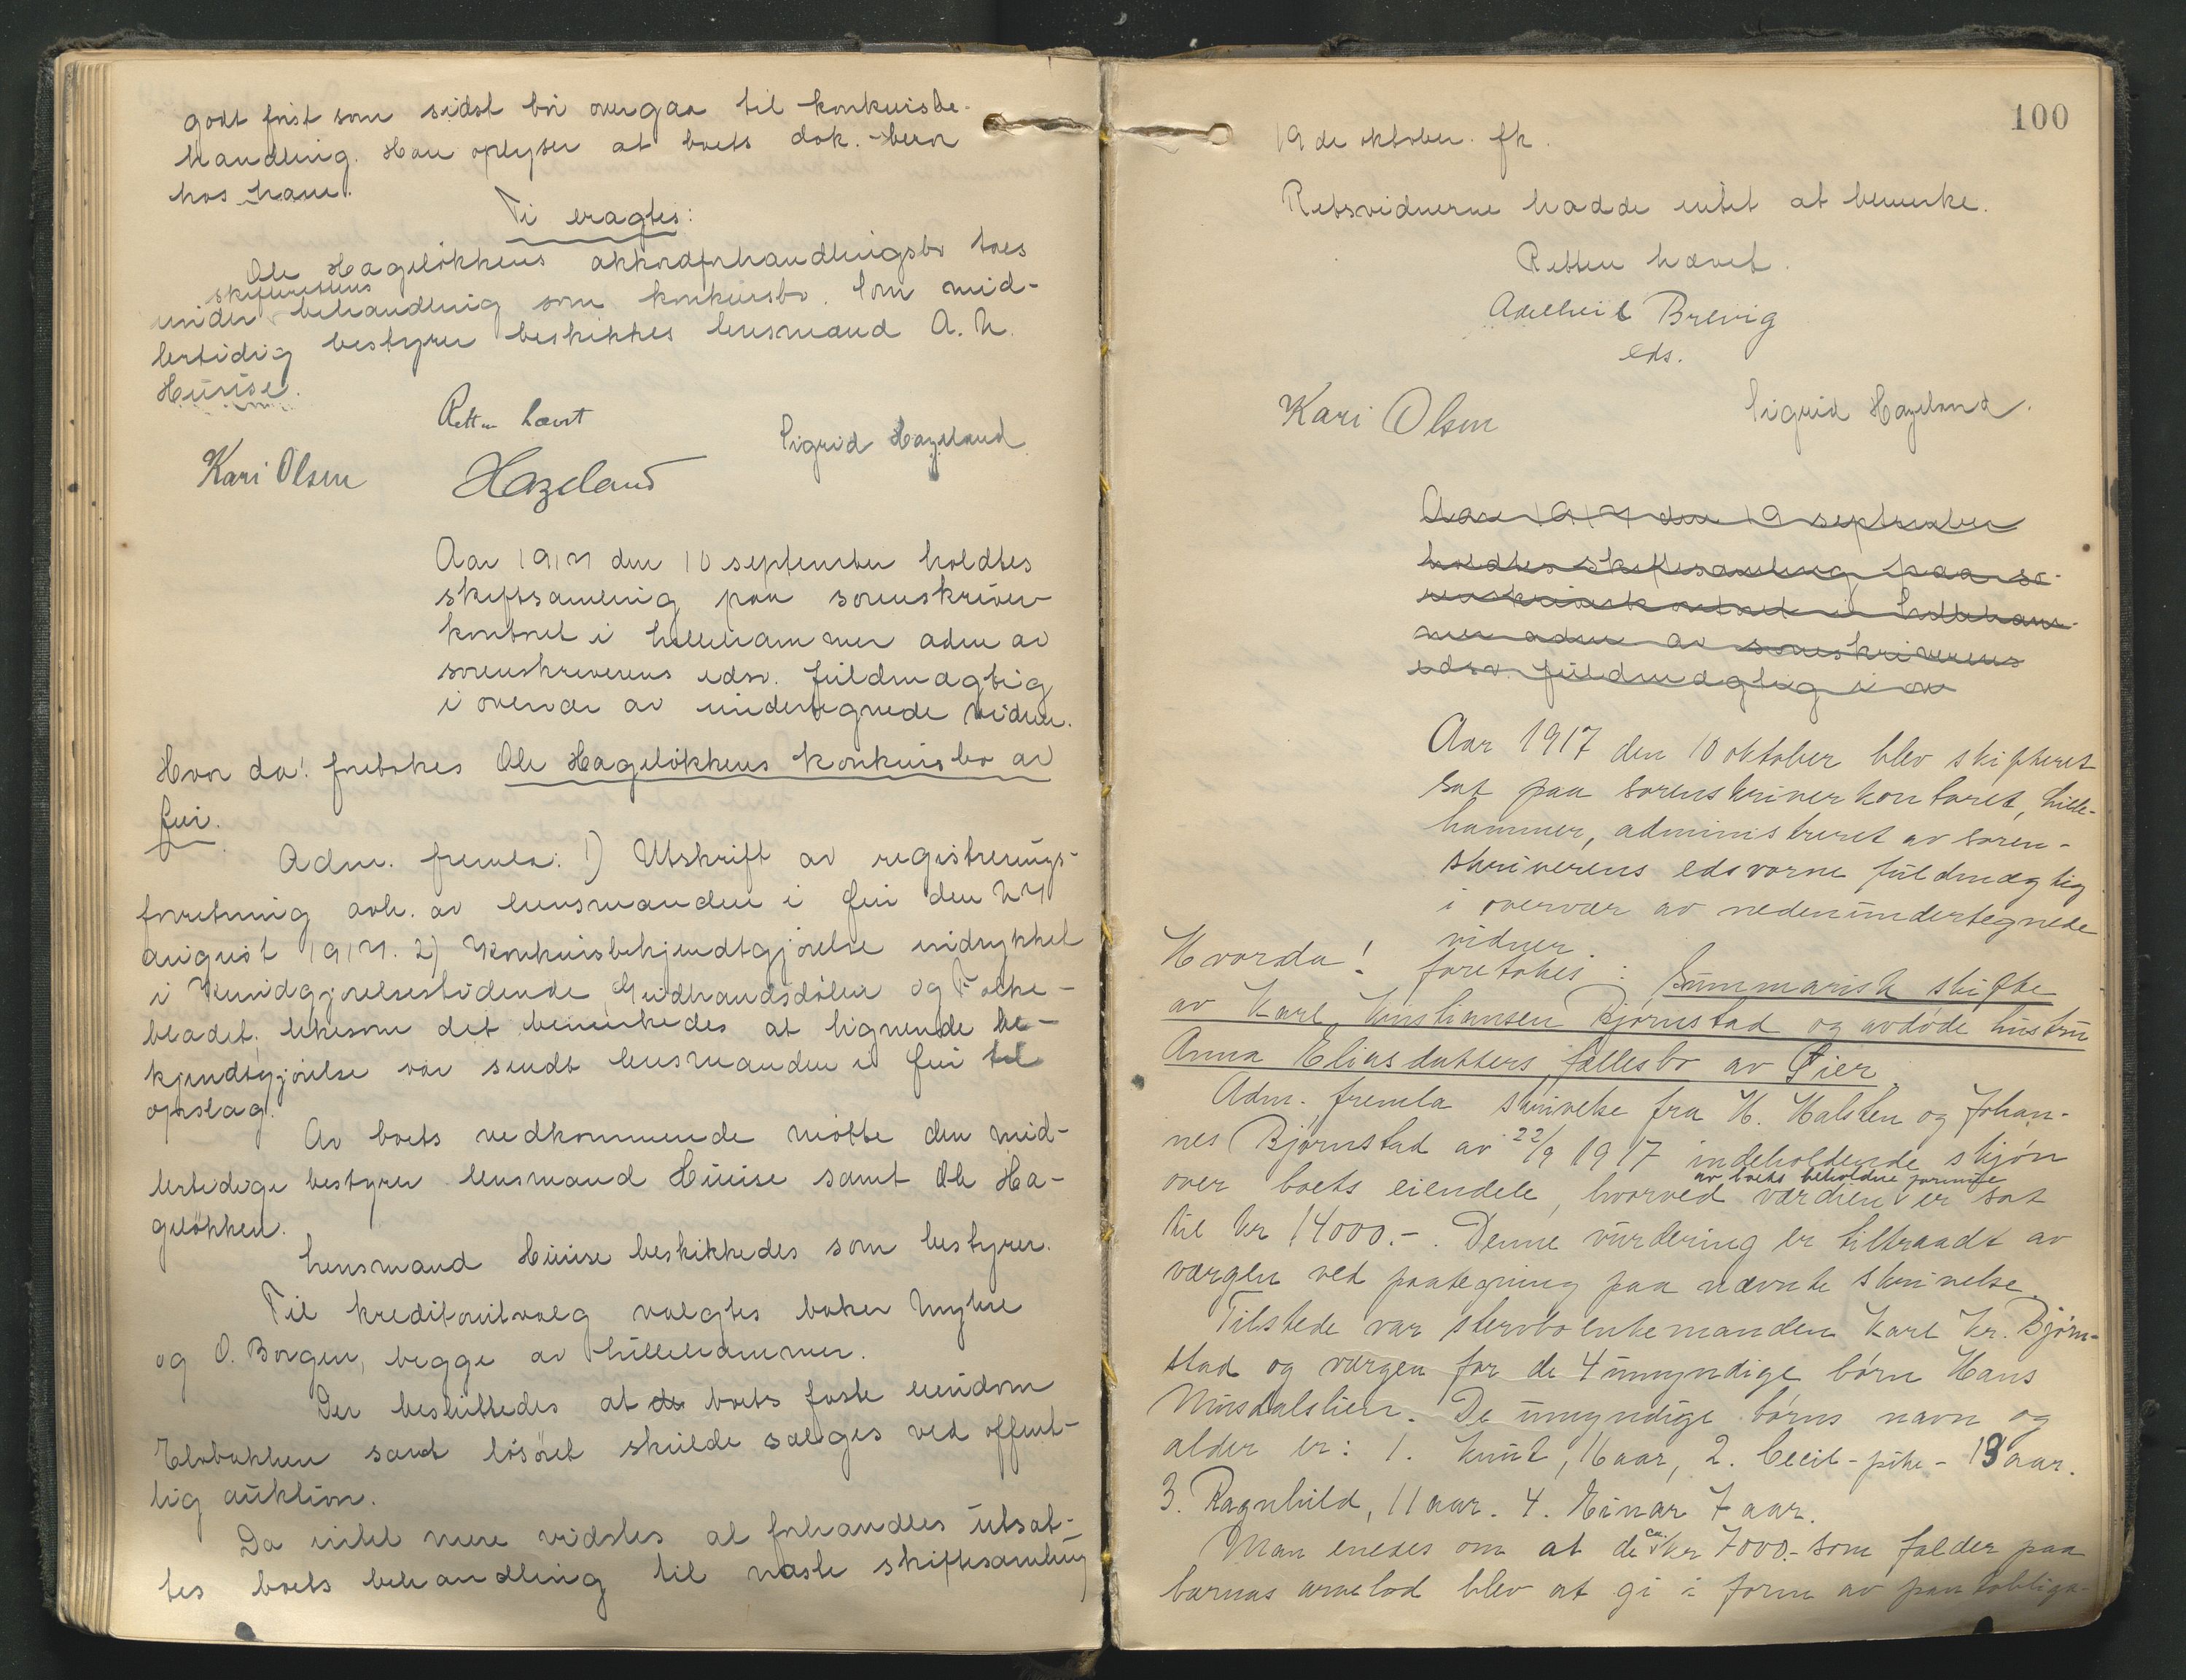 godt først som sidst bør overgaa til konkursbe-
handling. Han oplyser at boets dok. bero
hos ham.
Ti eragtes:
Ole Hageløkkens akkordforhandlingsbo toes
skifterettens
under behandling som konkursbo. Som mid-
lertidig bestyrer beskikkes lensmand A. N.
Huuse.
Retten hævet
Kari Olsen Hazeland Sigrid Hazeland
Aar 1917 den 10 september holdtes
skiftsamling paa sorenskriver-
kontoret i Lillehammer adm av
sorenskriverens edsv. fuldmægtig
i overvær av undertegnede vidner.
Hvor da! foretokes Ole Hageløkkens konkursbo av
Øier.
Adm. fremla: 1) Utskrift av registrerings-
forretning avh. av lensmanden i Øier den 27
august 1917. 2) Konkursbekjendtgjørelse indrykket
i Kundgjørelsestidende, Gudbrandsdølen og Folke-
bladet, likesom det bemerkedes at lignende be-
kjendtgjørelse var sendt lensmanden i Øier til
opslag.
Av boets vedkommende møtte den mid-
lertidige bestyrer lensmand Huuse samt Ole Ha-
geløkken.
Lensmand Huuse beskikkedes som bestyrer.
Til kreditorutvalg valgtes baker Myhre
og O. Borgen, begge av Lillehammer.
Der besluttedes at de boets faste eiendom
samt løsøret skulde sælges ved offent-
lig auktion.
Da intet mere vidstes at forhandles utsat-
tes boets behandling til næste skiftesamling
100
19de oktober. fk.
Retsvidnerne hadde intet at bemerke.
Retten hævet.
Adelheid Brevig
eds.
Kari Olsen Sigrid Hazeland.
Aar 1917 den 19 september
holdtes skiftesamling paa so-
renskriverkontoret i Lilleham-
mer adm av sorenskriverens
edsv. fuldmægtig i ov
Aar 1917 den 10 oktober blev skifteret
sat paa sorenskriverkontoret, Lille-
hammer, administreret av soren-
skriverens edsvorne fuldmægtig
i overvær av nedenundertegnede
vidner
Hvorda! foretokes: Summarisk skifte
av Karl Kristiansen Bjørnstad og avdøde hustru
Anna Eliasdatters fællesbo av Øier
Adm. fremla skrivelse fra H. Halsten og Johan-
nes Bjørnstad av 22/9 1917 indeholdende skjøn
av boets beholdne formue
over boets eiendele, hvorved værdien er sat
til kr 14000.-. Denne vurdering er tiltraadt av
værgen ved paategning paa nævnte skrivelse.
Tilstede var stervboenkemanden Karl Kr. Bjørn-
stad og værgen for de 4 umyndige børn Hans
De umyndige børns navn og
alder er: 1. Knut, 16 aar, 2. Cecil - pike - 13 aar.
3. Ragnhild, 11 aar. 4. Einar 7 aar.
ca.
Man enedes om at de kr 7000.- som falder paa
barnas arvelod blev at gi i form av pantobliga-